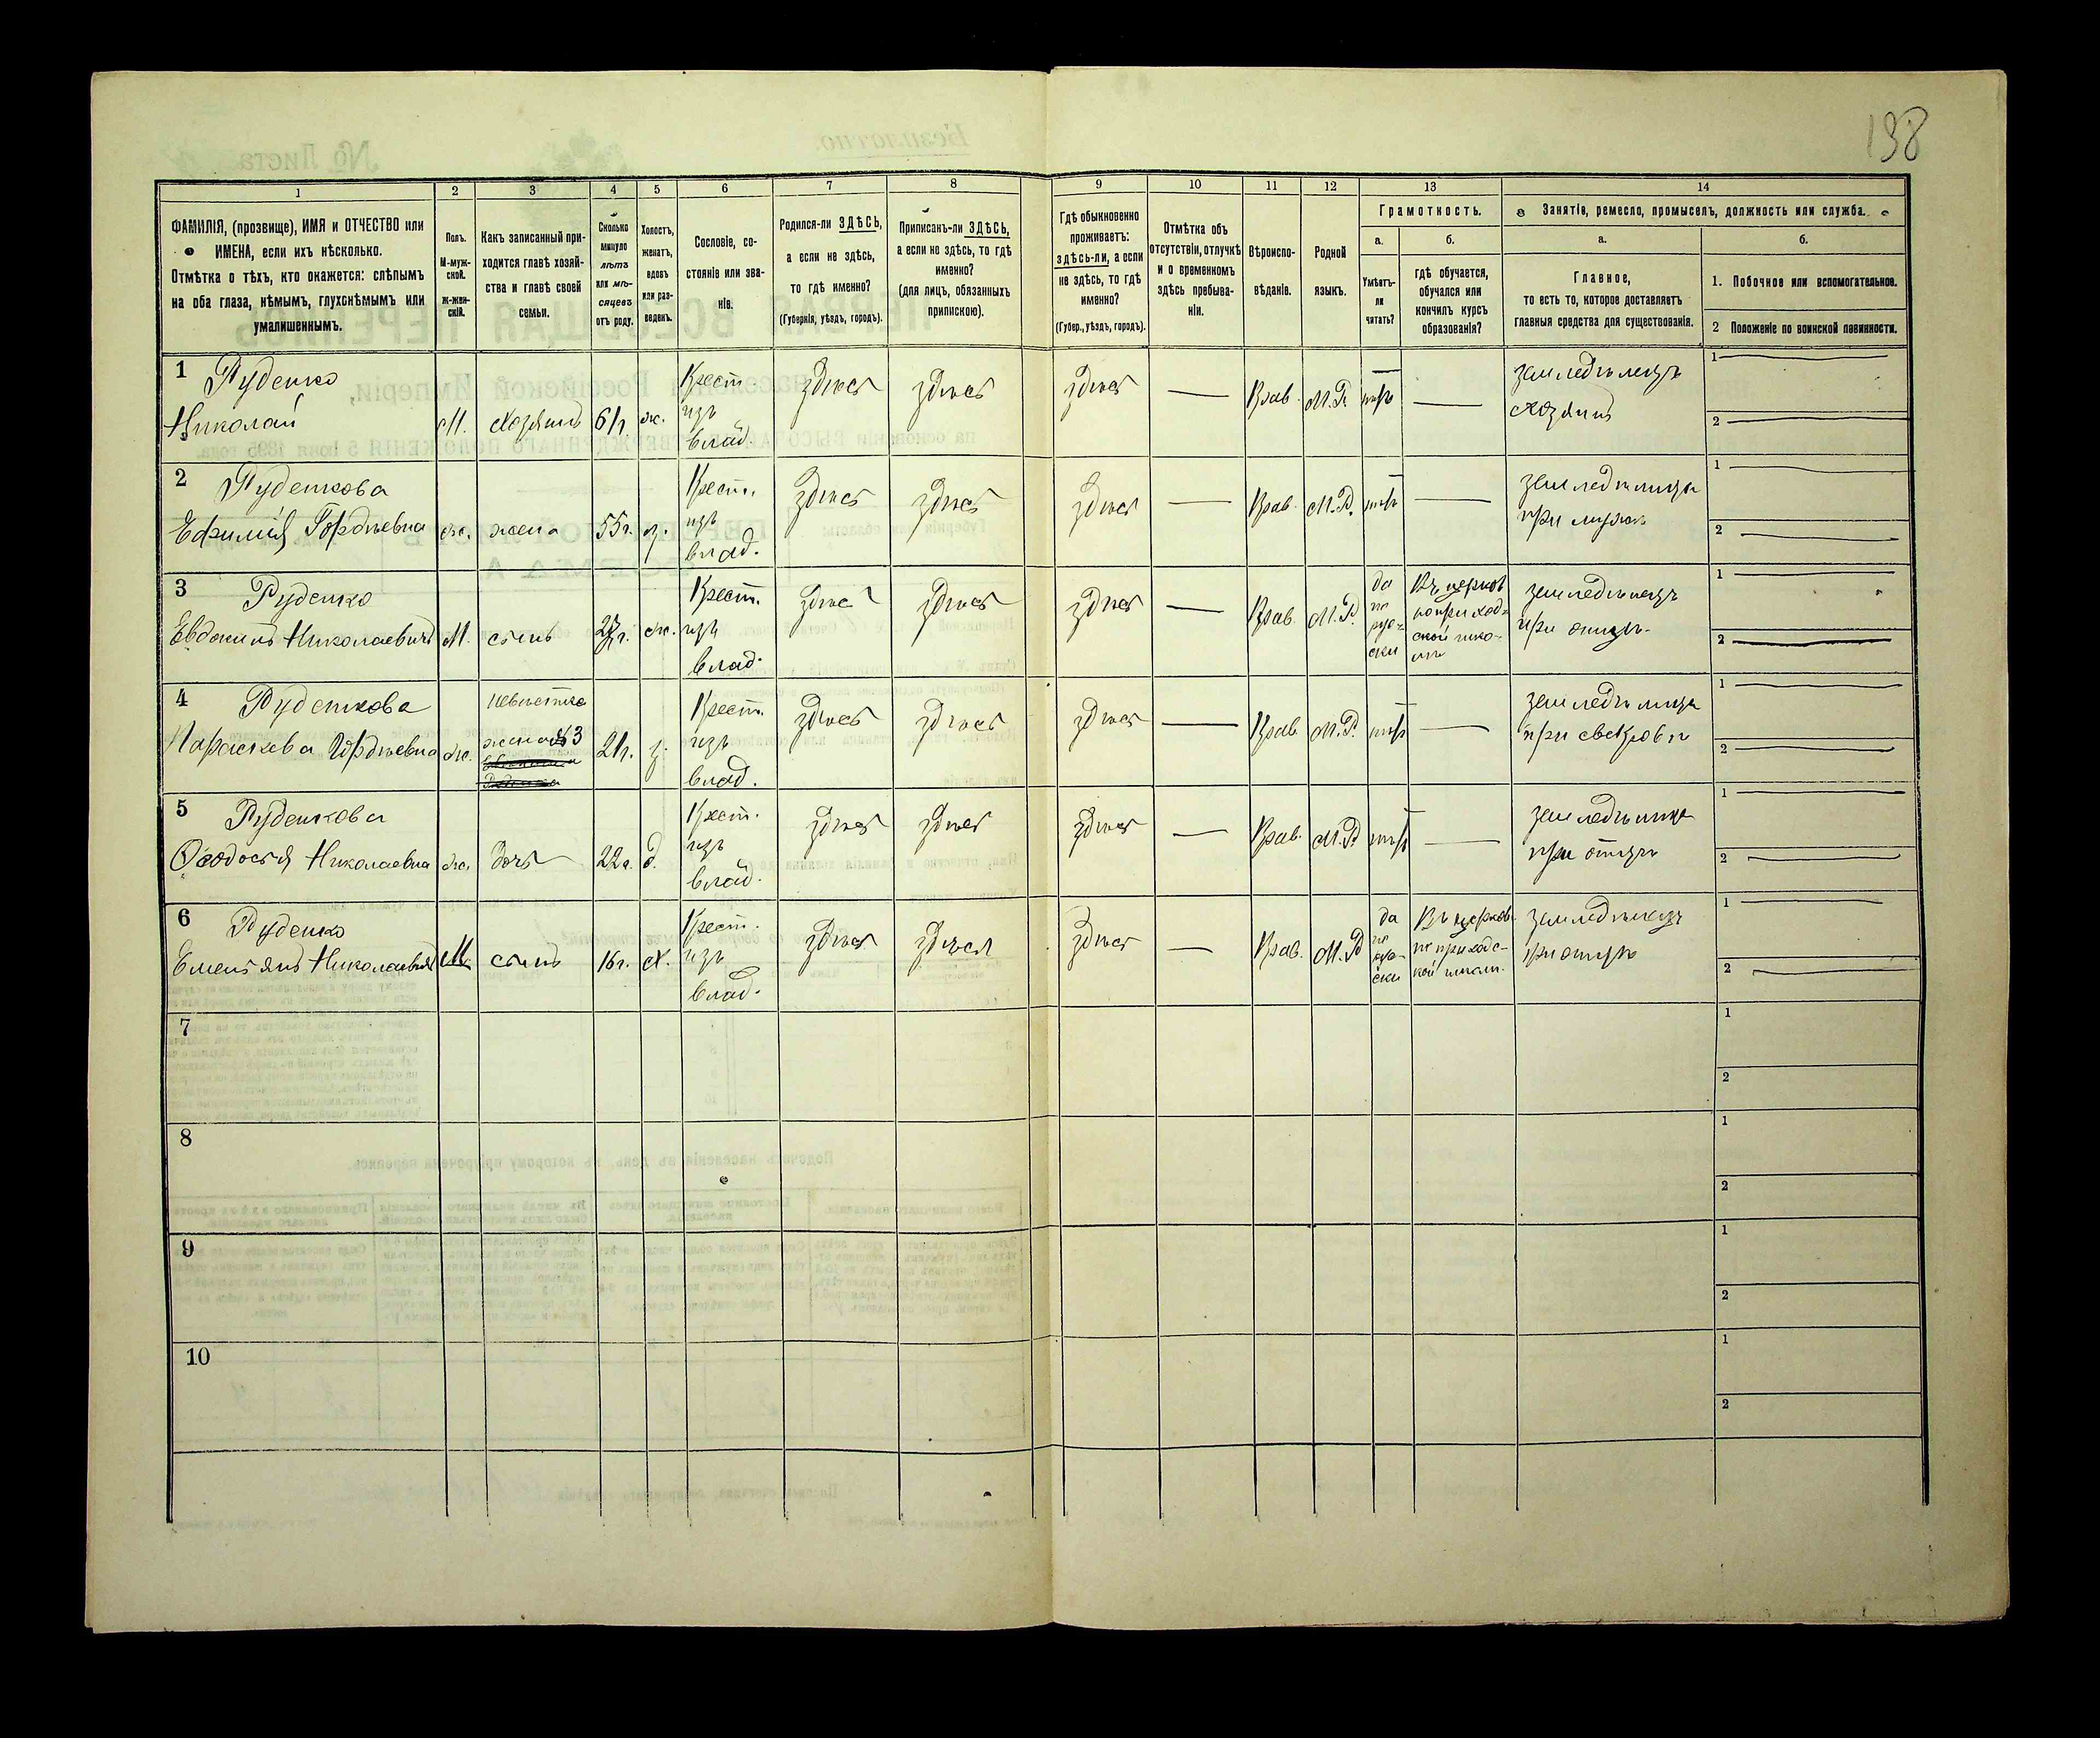 198
1
2
3
4
5
6
7
8
9
10
11
12
13
14
ФАМИЛІЯ, (прозвище), ИМЯ и ОТЧЕСТВО или
ИМЕНА, если ихъ нѣсколько.
Отмѣтка о тѣхъ, кто окажется: слѣпымъ
на оба глаза, нѣмымъ, глухонѣмымъ или
умалишеннымъ.
Полъ.
М-муж-
ской.
Ж-жен-
скій.
Какъ записанный при-
ходится главѣ хозяй-
ства и главѣ своей
семьи.
Сколько
минуло
лѣтъ
или мѣ-
сяцевъ
отъ роду.
Холостъ,
женатъ,
вдовъ
или раз-
веденъ.
Сословіе, со-
стояніе или зва-
ніе.
Родился-ли ЗДѢСЬ,
а если не здѣсь,
то гдѣ именно?
(Губернія, уѣздъ, городъ).
Приписанъ-ли ЗДѢСЬ,
а если не здѣсь, то гдѣ
именно?
(для лицъ, обязанныхъ
припискою).
Гдѣ обыкновенно
проживаетъ:
здѣсь-ли, а если
не здѣсь, то гдѣ
именно?
(Губер., уѣздъ, городъ).
Отмѣтка объ
отсутствіи, отлучкѣ
и о временномъ
здѣсь пребыва-
ніи.
Вѣроиспо-
вѣданіе.
Родной
языкъ.
Грамотность.
а.
Умѣетъ-
ли
читать?
б.
гдѣ обучается,
обучался или
кончилъ курсъ
образованія?
Занятіе, ремесло, промыселъ, должность или служба.
а.
Главное,
то есть то, которое доставляетъ
главныя средства для существованія.
б.
1. Побочное или вспомогательное.
2 Положеніе по воинской повинности.
1 Руденко
Николай
М. Хозяинъ 61г. ж.
Крест.
изъ
влад.
здѣсь здѣсь здѣсь — Прав. М.Р. нѣтъ —
земледѣлецъ
хозяинъ
1
2
2 Руденкова
Ефимія Гордѣевна
ж. жена 55г. з.
Крест.
изъ
влад.
здѣсь здѣсь здѣсь — Прав. М.Р. нѣтъ —
земледѣлица
при мужѣ
1
2
3 Руденко
Евдокимъ Николаевичъ
М. сынъ ж.
Крест.
изъ
влад.
здѣсь здѣсь здѣсь — Прав. М.Р.
да
по
рус-
ски
Въ церков
ноприход-
ской шко-
лѣ
земледѣлецъ
при отцѣ
1
2
4 Руденкова
Параскева Гордѣевна
ж.
невѣстка
жена №3
21г. з.
Крест.
изъ
влад.
здѣсь здѣсь здѣсь — Прав. М.Р. нѣтъ —
земледѣлица
при свекровѣ
1
2
5 Руденкова
Ѳеодосія Николаевна
ж. дочь 22г. д.
Крест.
изъ
влад.
здѣсь здѣсь здѣсь — Прав. М.Р. нѣтъ —
земледѣлица
при отцѣ
1
2
6 Руденко
Емельянъ Николаевичъ
М. сынъ 16г. Х.
Крест.
изъ
влад.
здѣсь здѣсь здѣсь — Прав. М.Р
да
по
рус-
ски
Въ церков-
ноприходс-
кой школѣ.
земледѣлецъ
при отцѣ
1
2
7
1
2
8
1
2
9
1
2
10
1
2